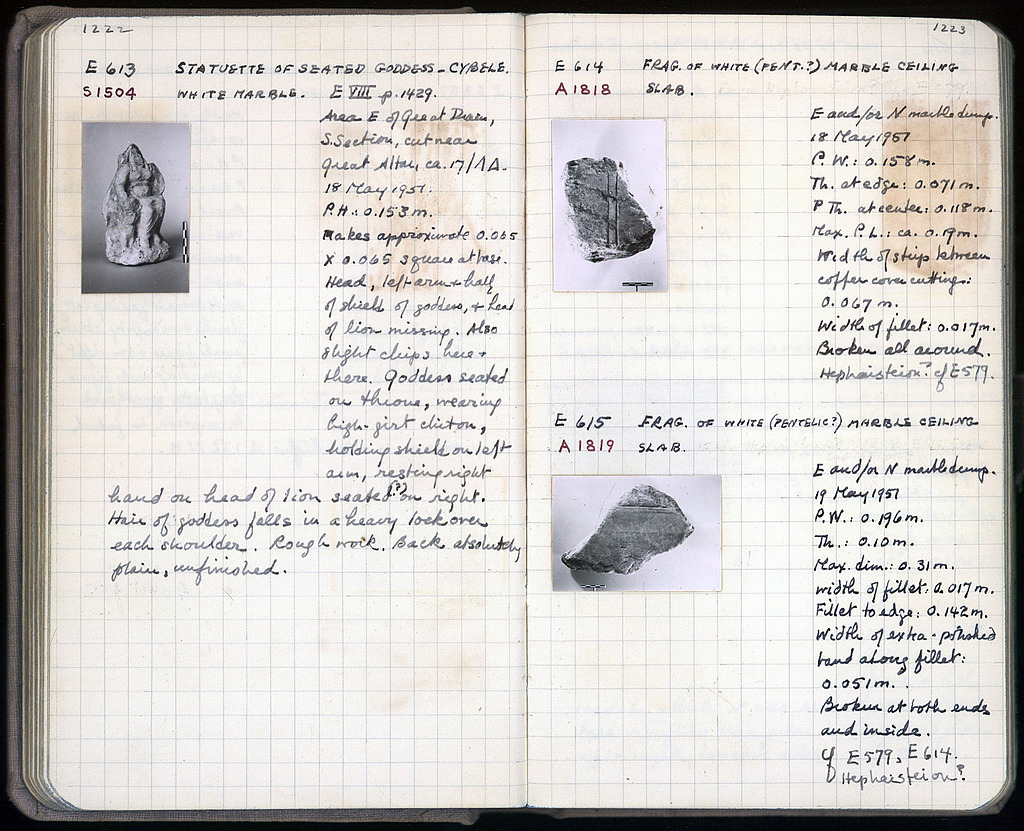 1222
E 613 STATUETTE OF SEATED GODDESS - CYBELE.
S1504 WHITE MARBLE. E VIII p. 1429.
Area E of Great Drain,
S. Section, cut near
Great Altar, ca. 17/ΛΔ.
18 May 1951.
P.H.: 0.153 m.
Makes approximate 0.065
x 0.065 square at base.
Head, left arm + half
of shield of goddess, + head
of lion missing. Also
slight chips here +
there. Goddess seated
on throne, wearing
high-girt chiton,
holding shield on left
arm, resting right
hand on head of lion seated (?) on right.
Hair of goddess falls in a heavy lock over
each shoulder. Rough work. Back absolutely
plain, unfinished.
1223
E 614 FRAG. OF WHITE (PENT.?) MARBLE CEILING
A 1818 SLAB.
E and/or N marble dump.
18 May 1951
P.W.: 0.158 m.
Th. at edge: 0.071 m.
P Th. at center: 0.118 m.
Max. P.L.: ca. 0.19 m.
Width of strip between
coffer cover cuttings:
0.067 m.
Width of fillet: 0.017 m.
Broken all around.
Hephaisteion? cf E 579.
E 615 FRAG. OF WHITE (PENTELIC?) MARBLE CEILING
A 1819 SLAB.
E and/or N marble dump.
19 May 1951
P.W.: 0.196 m.
Th.: 0.10 m.
Max. dim.: 0.31 m.
width of fillet: 0.017 m.
Fillet to edge: 0.142 m.
Width of extra-polished
band along fillet:
0.051 m.
Broken at both ends
and inside.
cf E 579, E 614.
Hephaisteion?